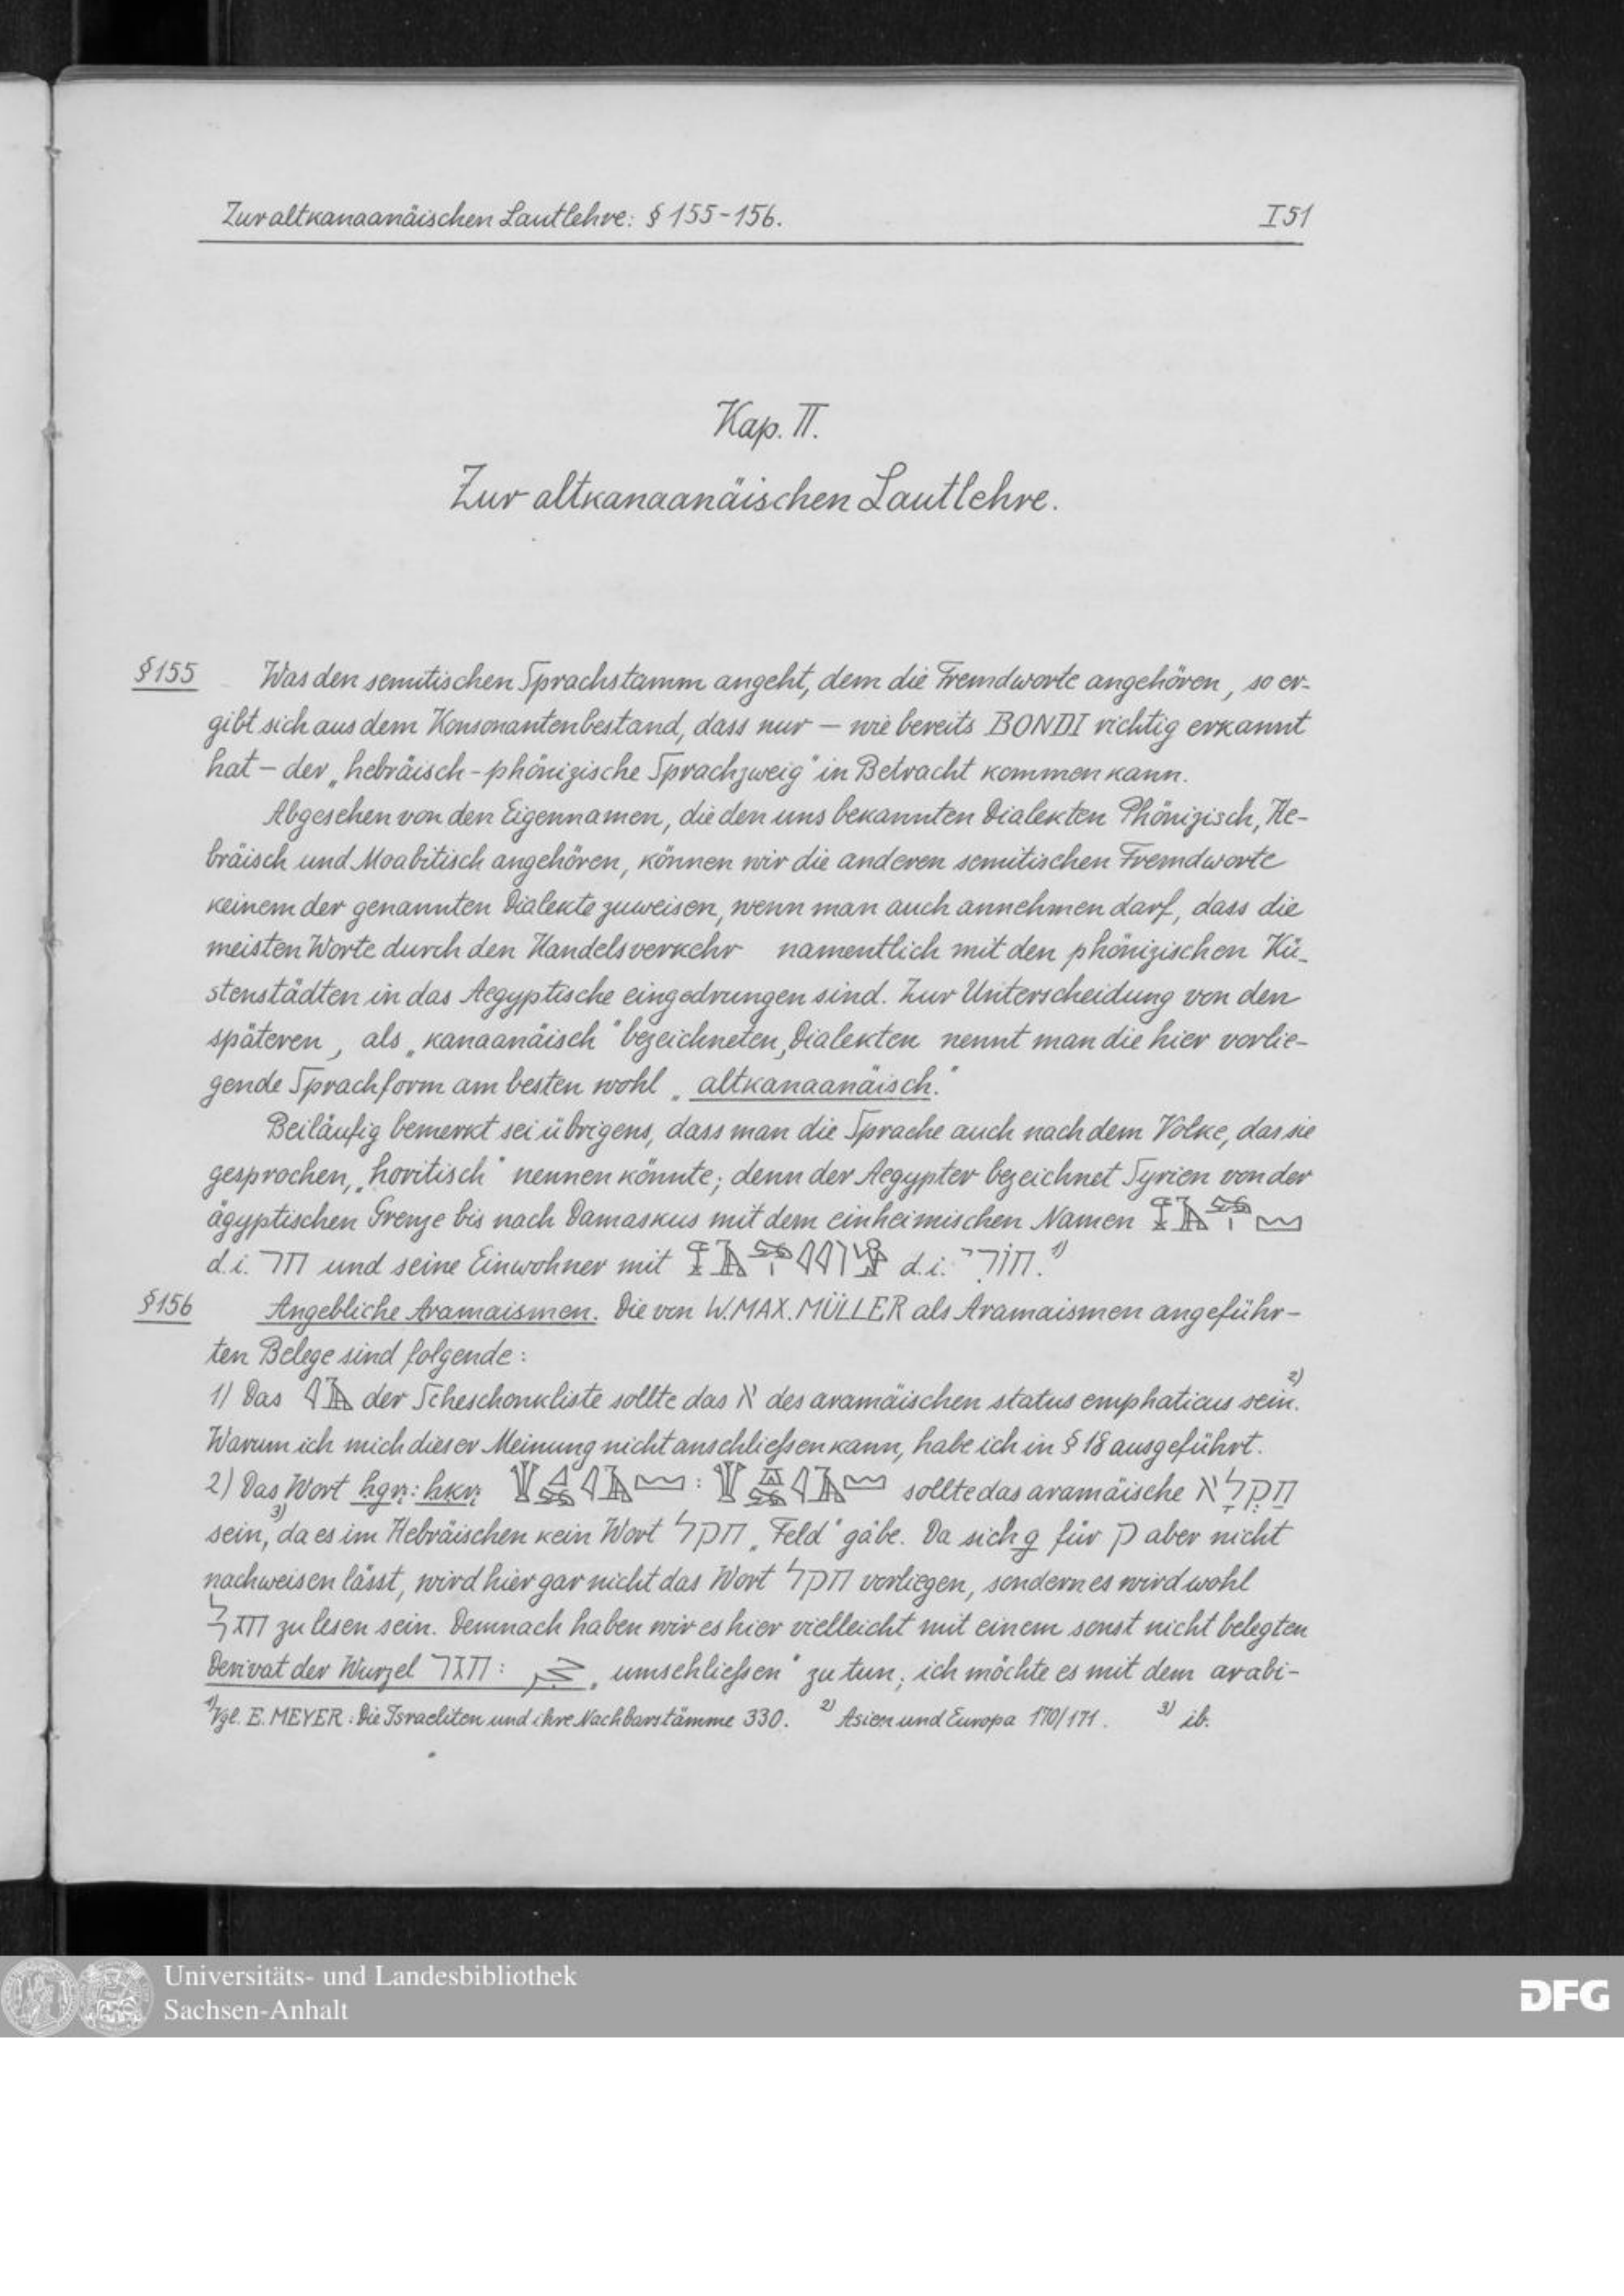 Zur altkanaanäischen Lautlehre: § 155-156.
I 51
Kap. II.
Zur altkanaanäischen Lautlehre.
§ 155 Was den semitischen Sprachstamm angeht, dem die Fremdworte angehören, so er-
gibt sich aus dem Konsonantenbestand, dass nur — wie bereits BONDI richtig erkannt
hat — der „hebräisch-phönizische Sprachzweig" in Betracht kommen kann.
Abgesehen von den Eigennamen, die den uns bekannten Dialekten Phönizisch, He-
bräisch und Moabitisch angehören, können wir die anderen semitischen Fremdworte
keinem der genannten Dialekte zuweisen, wenn man auch annehmen darf, dass die
meisten Worte durch den Handelsverkehr namentlich mit den phönizischen Kü-
stenstädten in das Aegyptische eingedrungen sind. Zur Unterscheidung von den
späteren, als „kanaanäisch" bezeichneten, Dialekten nennt man die hier vorlie-
gende Sprachform am besten wohl „altkanaanäisch."
Beiläufig bemerkt sei übrigens, dass man die Sprache auch nach dem Volke, das sie
gesprochen, „horitisch" nennen könnte; denn der Aegypter bezeichnet Syrien von der
ägyptischen Grenze bis nach Damaskus mit dem einheimischen Namen
d.i. חר und seine Einwohner mit d.i. חורי. 1)
§ 156 Angebliche Aramaismen. Die von W. MAX. MÜLLER als Aramaismen angeführ-
ten Belege sind folgende:
1) Das der Scheschonkliste sollte das א des aramäischen status emphaticus sein. 2)
Warum ich mich dieser Meinung nicht anschließen kann, habe ich in § 18 ausgeführt.
2) Das Wort : sollte das aramäische חַקְלָא
sein, 3) da es im Hebräischen kein Wort חקל „Feld" gäbe. Da sich g für ק aber nicht
nachweisen lässt, wird hier gar nicht das Wort חקל vorliegen, sondern es wird wohl
חגל zu lesen sein. Demnach haben wir es hier vielleicht mit einem sonst nicht belegten
Derivat der Wurzel חגר: „umschließen" zu tun; ich möchte es mit dem arabi-
1) Vgl. E. MEYER: Die Israeliten und ihre Nachbarstämme 330. 2) Asien und Europa 170/171. 3) ib.
Universitäts- und Landesbibliothek
Sachsen-Anhalt
DFG